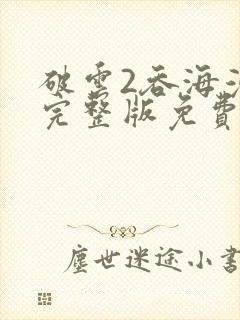 破雲2吞海
完整版免費
塵世迷途小書